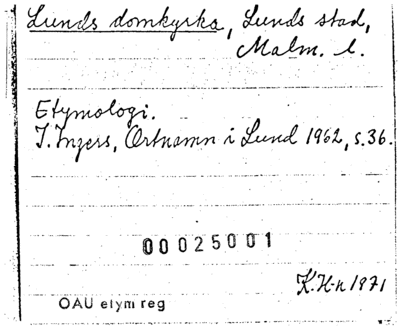 Lunds domkyrka, Lunds stad,
Malm. l.
Etymologi.
I. Ingers, Ortnamn i Lund 1962, s. 36.
00025001
K. H-n 1971
OAU etym reg